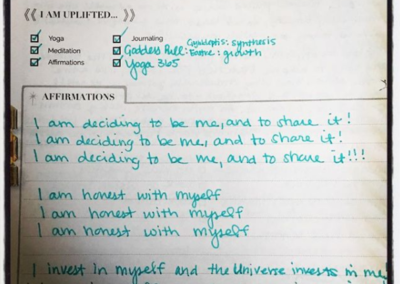 I AM UPLIFTED...
Yoga Journaling
Meditation Goddess Pull: synthesis
: growth
Affirmations Yoga 365
AFFIRMATIONS
I am deciding to be me, and to share it!
I am deciding to be me, and to share it!
I am deciding to be me, and to share it!!!
I am honest with myself
I am honest with myself
I am honest with myself
I invest in myself and the Universe invests in me